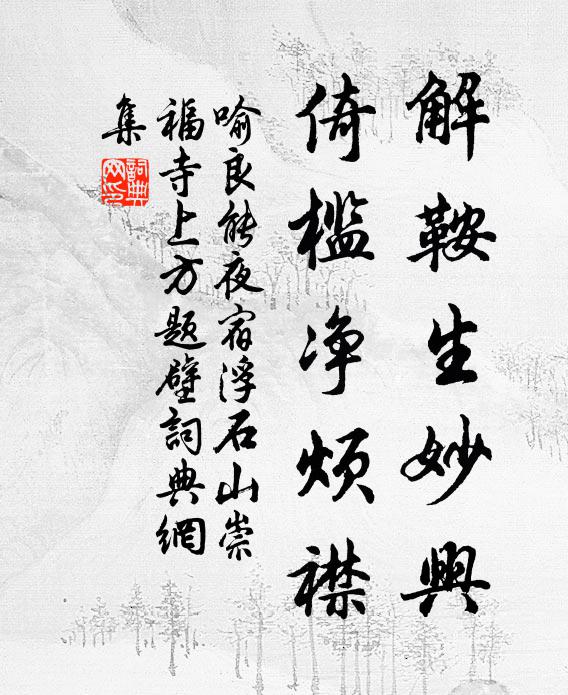 解鞍生妙興
倚檻净煩襟
喻良能夜宿浮石山崇
福寺上方題壁詞典網
集
詞典
网印